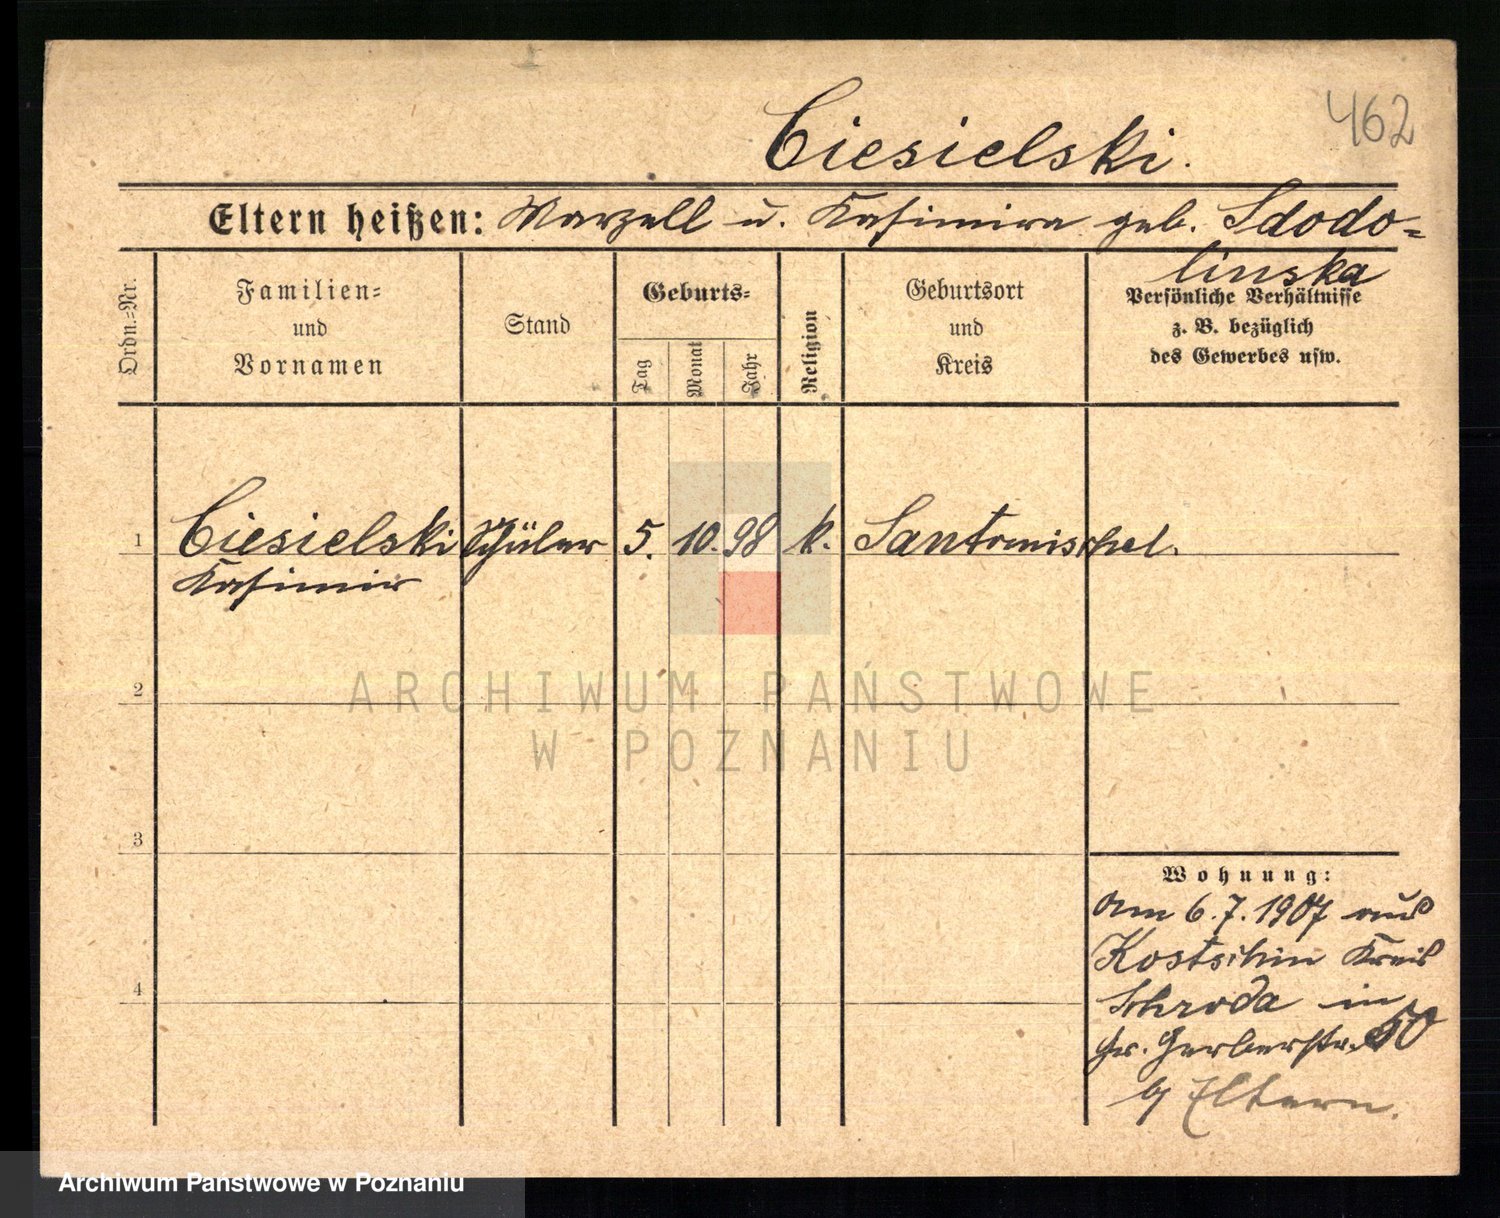 462
Ciesielski.
Eltern heißen: Marzell u. Kasimira geb. Sdodo=
linska
Ordn.=Nr.
Familien=
und
Vornamen
Stand
Geburts=
Tag
Monat
Jahr
Religion
Geburtsort
und
Kreis
Persönliche Verhältnisse
z. B. bezüglich
des Gewerbes usw.
1 Ciesielski Schüler 5. 10. 98 k. Santomischel.
Kasimir
2
3
4
Wohnung:
Am 6.7.1907 aus
Kostschin Kreis
Schroda in
Gr. Gerberstr. 50
b/ Eltern.
ARCHIWUM PAŃSTWOWE
W POZNANIU
Archiwum Państwowe w Poznaniu